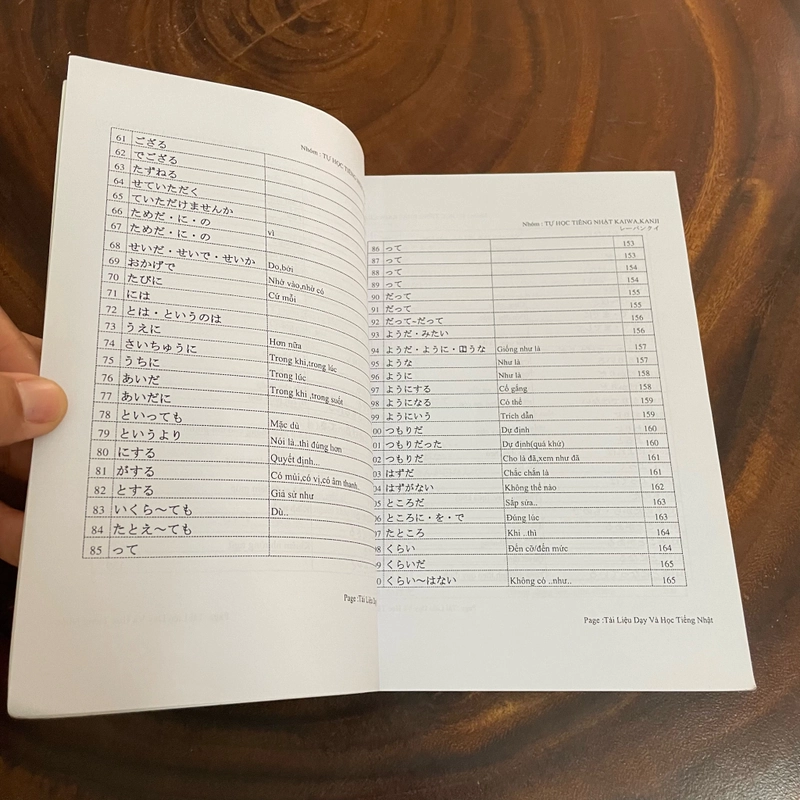 Nhóm : TỰ HỌC TIẾNG
61 ござる
62 でござる
63 たずねる
64 せていただく
65 ていただけませんか
66 ためだ・に・の
67 ためだ・に・の vì
68 せいだ・せいで・せいか Do,bởi
69 おかげで Nhờ vào,nhờ có
70 たびに Cứ mỗi
71 には
72 とは・というのは
73 うえに Hơn nữa
74 さいちゅうに Trong khi,trong lúc
75 うちに Trong lúc
76 あいだ Trong khi ,trong suốt
77 あいだに
78 といっても Mặc dù
79 というより Nói là..thì đúng hơn
80 にする Quyết định...
81 がする Có mùi,có vị,có âm thanh..
82 とする Giả sử như
83 いくら～ても Dù..
84 たとえ～ても
85 って
Page :Tài Liệu Dạy
Nhóm : TỰ HỌC TIẾNG NHẬT KAIWA,KANJI
レーバンクイ
86 って 153
87 って 153
88 って 154
89 って 154
90 だって 155
91 だって 155
92 だって~だって 156
93 ようだ・みたい 156
94 ようだ・ように・のような Giống như là 157
95 ような Như là 157
96 ように Như là 158
97 ようにする Cố gắng 158
98 ようになる Có thể 159
99 ようにいう Trích dẫn 159
00 つもりだ Dự định 160
01 つもりだった Dự định(quá khứ) 160
02 つもりだ Cho là đã,xem như đã 161
03 はずだ Chắc chắn là 161
04 はずがない Không thể nào 162
05 ところだ Sắp sửa.. 163
06 ところに・を・で Đúng lúc 163
07 たところ Khi ..thì 164
08 くらい Đến cỡ/đến mức 164
09 くらいだ 165
0 くらい～はない Không có ..như.. 165
Page :Tài Liệu Dạy Và Học Tiếng Nhật